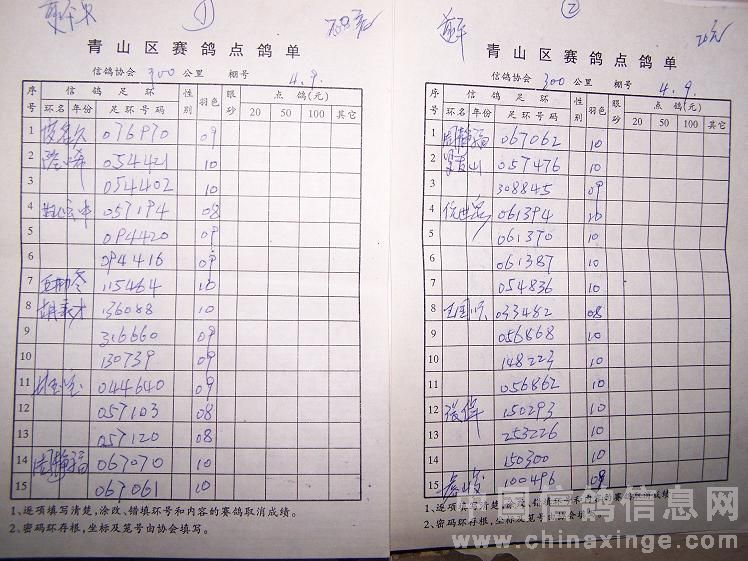 ①
青山区赛鸽点鸽单
信鸽协会 300 公里 棚号 4.9.
序号 信鸽足环 性别 羽色 眼砂 点鸽(元)
环名 年份 足环号码 20 50 100 其它
1 076970 09
2 054421 10
3 054402 10
4 057194 08
5 094420 09
6 094416 09
7 115464 10
8 136088 10
9 316660 09
10 130739 09
11 044640 09
12 057103 08
13 057120 08
14 周静福 067070 10
15 067061 10
1、逐项填写清楚,涂改、错填环号和内容的赛鸽取消成绩。
2、密码环存根,坐标及笼号由协会填写。
②
20元
青山区赛鸽点鸽单
信鸽协会 300 公里 棚号 4.9.
序号 信鸽足环 性别 羽色 眼砂 点鸽(元)
环名 年份 足环号码 20 50 100 其它
1 周静福 067062 10
2 057476 10
3 308845 09
4 061394 10
5 061370 10
6 061387 10
7 054836 10
8 033482 08
9 056868 10
10 148223 10
11 056862 10
12 150293 10
13 253226 10
14 150300 10
15 100496 09
1、逐项填写清楚,涂改、错填环号和内容的赛鸽取消成绩。
2、密码环存根,坐标及笼号由协会填写。
中国信鸽信息网
www.chinaxinge.com